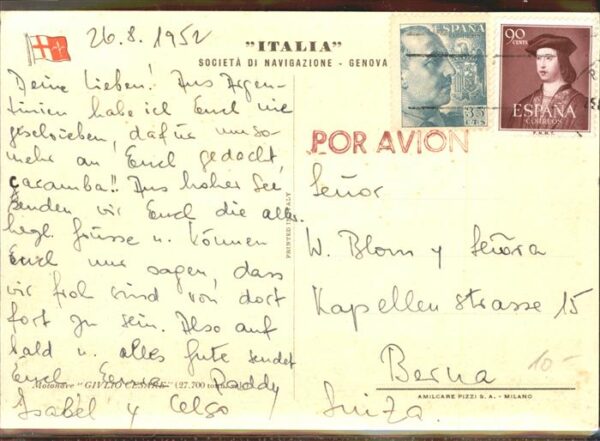 26.8.1952
"ITALIA"
SOCIETÀ DI NAVIGAZIONE - GENOVA
Deine Lieben! Aus Argen-
tinien habe ich Euch nie
geschrieben, dafür umso-
mehr an Euch gedacht,
caramba!! Aus hoher See
senden wir Euch die aller-
hegl. Grüsse u. können
Euch nur sagen, dass
wir froh sind von dort
fort zu sein. Also auf
bald u. alles Gute sendet
Euch Paddy
Isabél y
Motonave "GIULIO CESARE" (27.700 tonn.)
PRINTED IN ITALY
ESPAÑA
35
CTS
90
CENTS
ESPAÑA
CORREOS
F.N.M.T.
POR AVION
Señor
W. Blom y Señora
Kapellenstrasse 15
Berna
Suiza.
10.-
AMILCARE PIZZI S. A. - MILANO